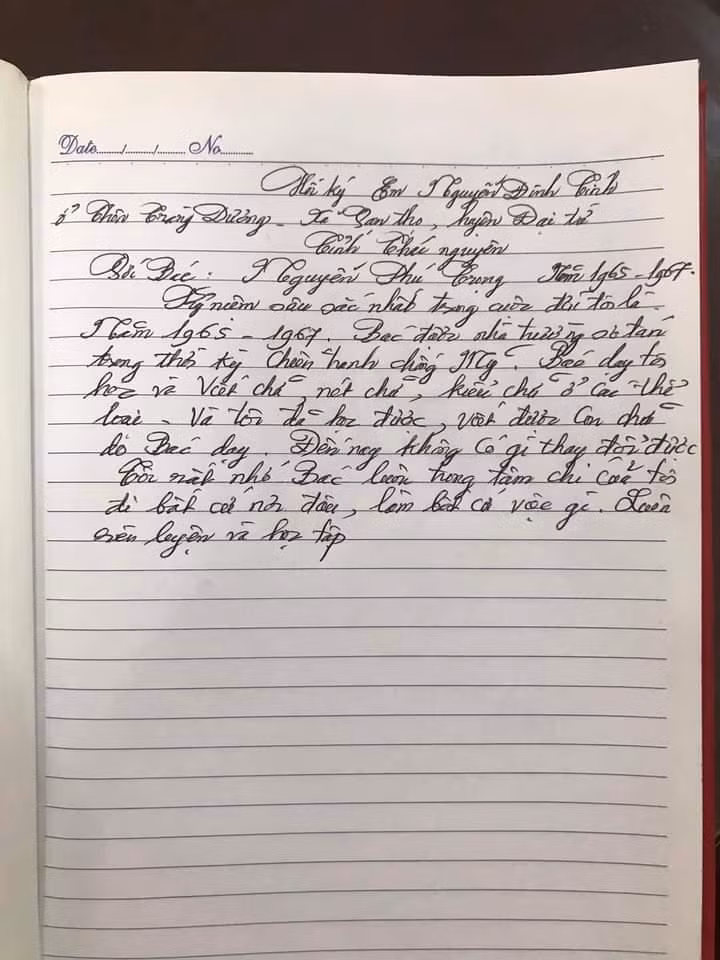 Date....../....../...... No.........
Hồi ký Em Nguyễn Đình Tính
ở Thôn Trung Dường - Xã Vạn thọ, huyện Đại từ
Tỉnh Thái nguyên
Gửi Bác: Nguyễn Phú Trọng Năm 1965-1967.
Kỷ niệm sâu sắc nhất trong cuộc đời tôi là
Năm 1965 - 1967. Bác được nhà trường sơ tán
trong thời kỳ chiến tranh chống Mỹ. Bác dạy tôi
học và viết chữ, nét chữ, kiểu chữ ở các thể
loại - Và tôi đã học được, viết được con chữ
do Bác dạy. Đến nay không có gì thay đổi được
Tôi rất nhớ Bác luôn trong tâm chí của tôi
đi bất cứ nơi đâu, làm bất cứ việc gì. Luôn
rèn luyện và học tập